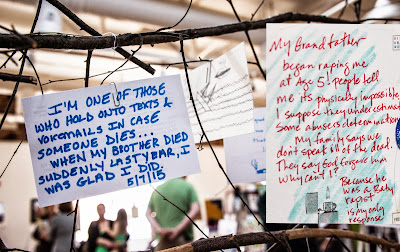 I'M ONE OF THOSE
WHO HOLD ONTO TEXTS &
VOICEMAILS IN CASE
SOMEONE DIES...
WHEN MY BROTHER DIED
SUDDENLY LAST YEAR, I
WAS GLAD I DID.
5/7/13
My Grandfather
began raping me
at Age 5. People tell
me its physically impossible,
I suppose they underestimate
Some abusers determination
My family says we
don't speak ill of the dead.
They say God forgave him
Why can't I?
Because
he was a Baby
rapist
is my only
response